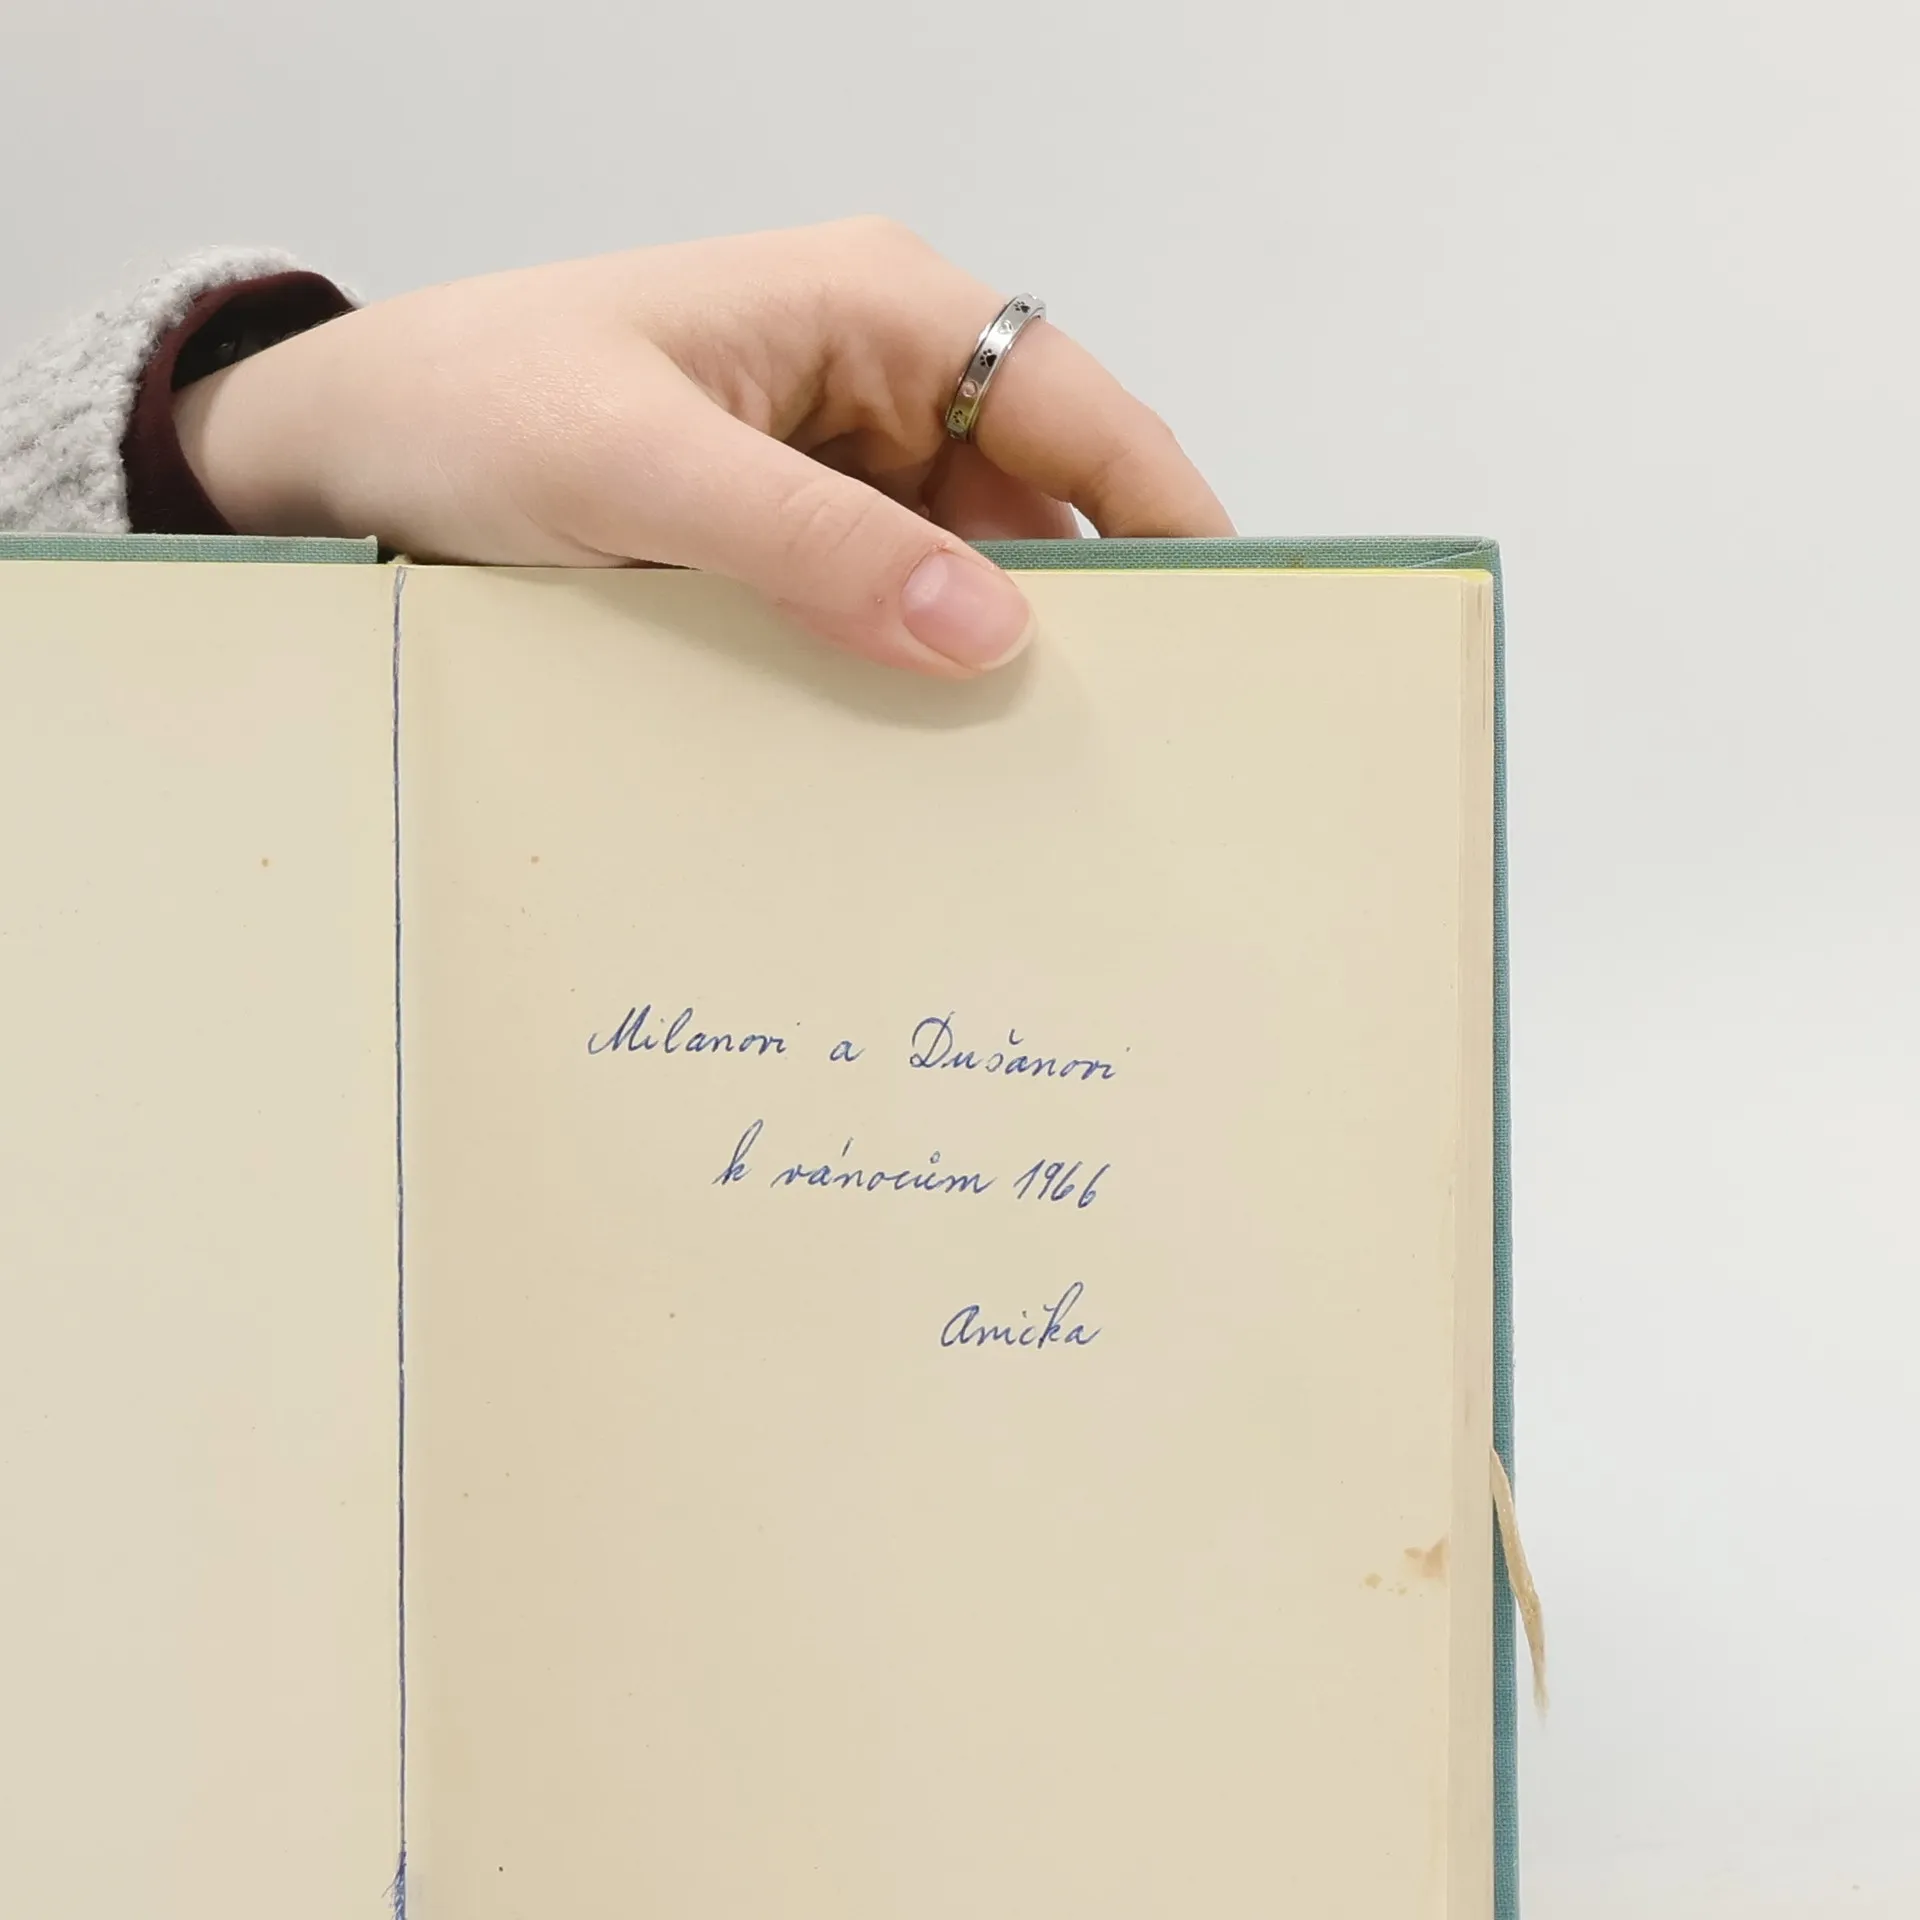 Milanovi a Dušanovi
k vánocům 1966
Anička